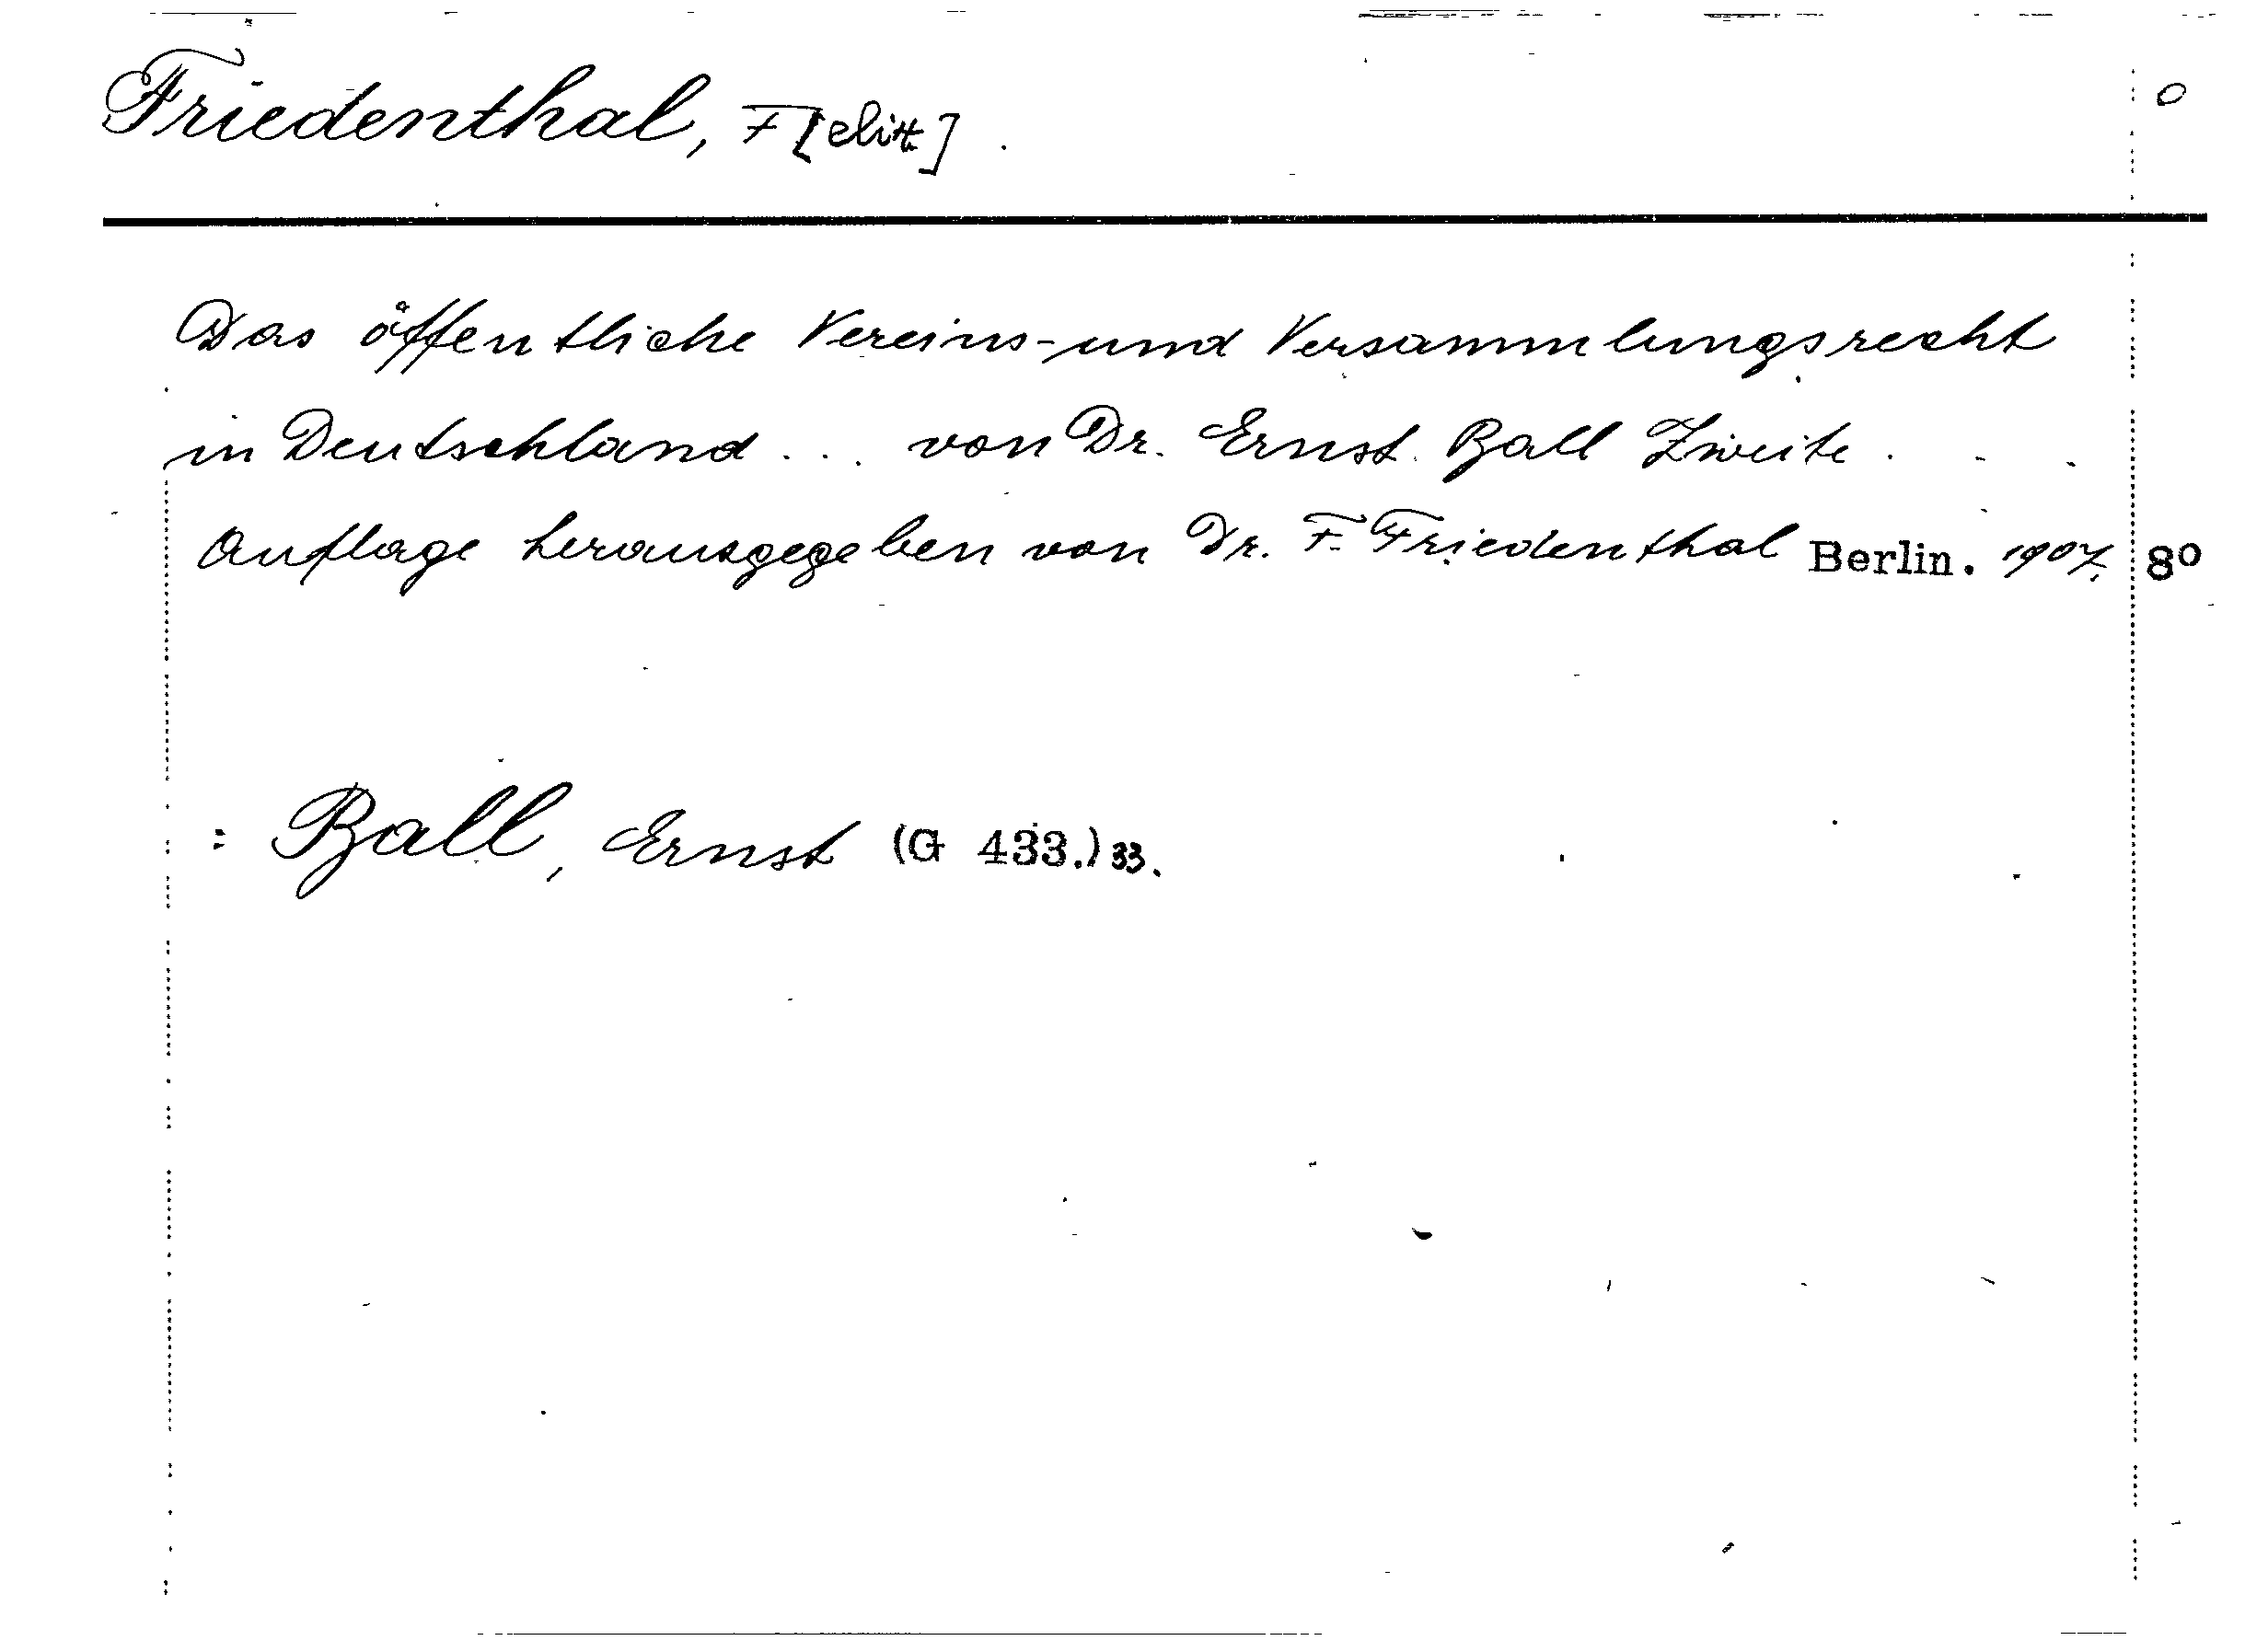 Friedenthal, F[elix]. 0
Das öffentliche Vereins- und Versammlungsrecht
in Deutschland ... von Dr. Ernst Ball Zweite . . .
Auflage herausgegeben von Dr. F. Friedenthal Berlin. 1907. 8º
: Ball, Ernst (G 433.) 33.